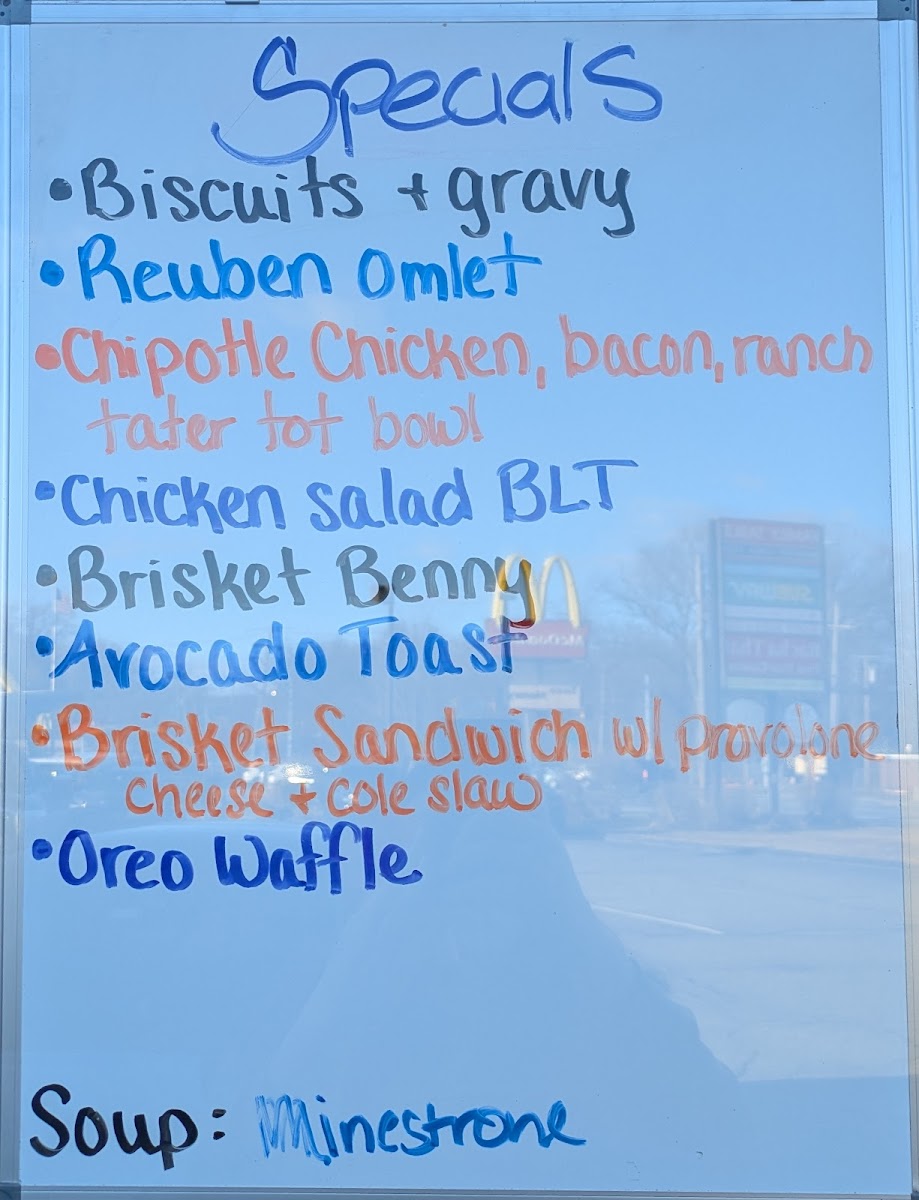 Specials
•Biscuits + gravy
•Reuben Omlet
•Chipotle Chicken, bacon, ranch
tater tot bowl
•Chicken salad BLT
•Brisket Benny
•Avocado Toast
•Brisket Sandwich w/ provolone
cheese + cole slaw
•Oreo Waffle
Soup: Minestrone